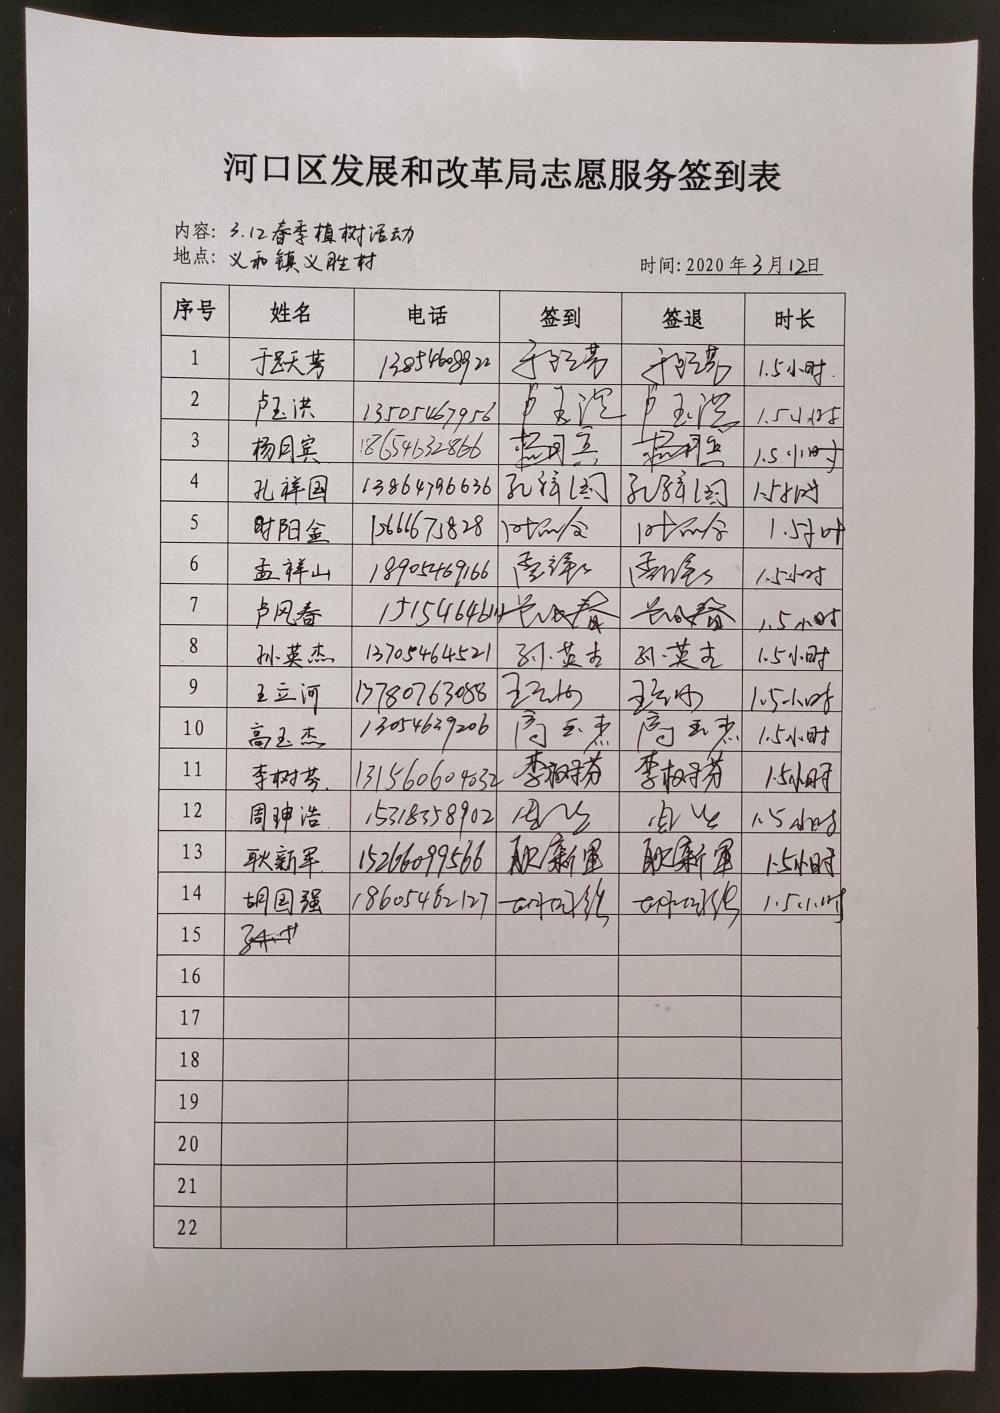 河口区发展和改革局志愿服务签到表
内容: 3.12春季植树活动
地点: 义和镇义胜村
时间: 2020年3月12日
序号 姓名 电话 签到 签退 时长
1 于跃芳 13854608922 1.5小时.
2 卢玉洪 13505467956 卢玉洪 卢玉洪 1.5小时
3 杨同宾 18654632866 杨同宾 杨同宾 1.5小时
4 孔祥国 13864796636 孔祥国 孔祥国 1.5小时
5 时阳金 13666673828 1.5小时
6 孟祥山 18905469166 孟祥山 孟祥山 1.5小时
7 卢风春 1.5小时
8 孙英杰 13705464521 孙英杰 孙英杰 1.5小时
9 王立河 13780763088 王立河 王立河 1.5小时
10 高玉杰 13054639206 高玉杰 高玉杰 1.5小时
11 李树芬 131560604032 李树芬 李树芬 1.5小时
12 周珅浩 15318358902 1.5小时
13 耿新军 15266099566 耿新军 耿新军 1.5小时
14 胡国强 18605462127 胡国强 胡国强 1.5小时
15
16
17
18
19
20
21
22